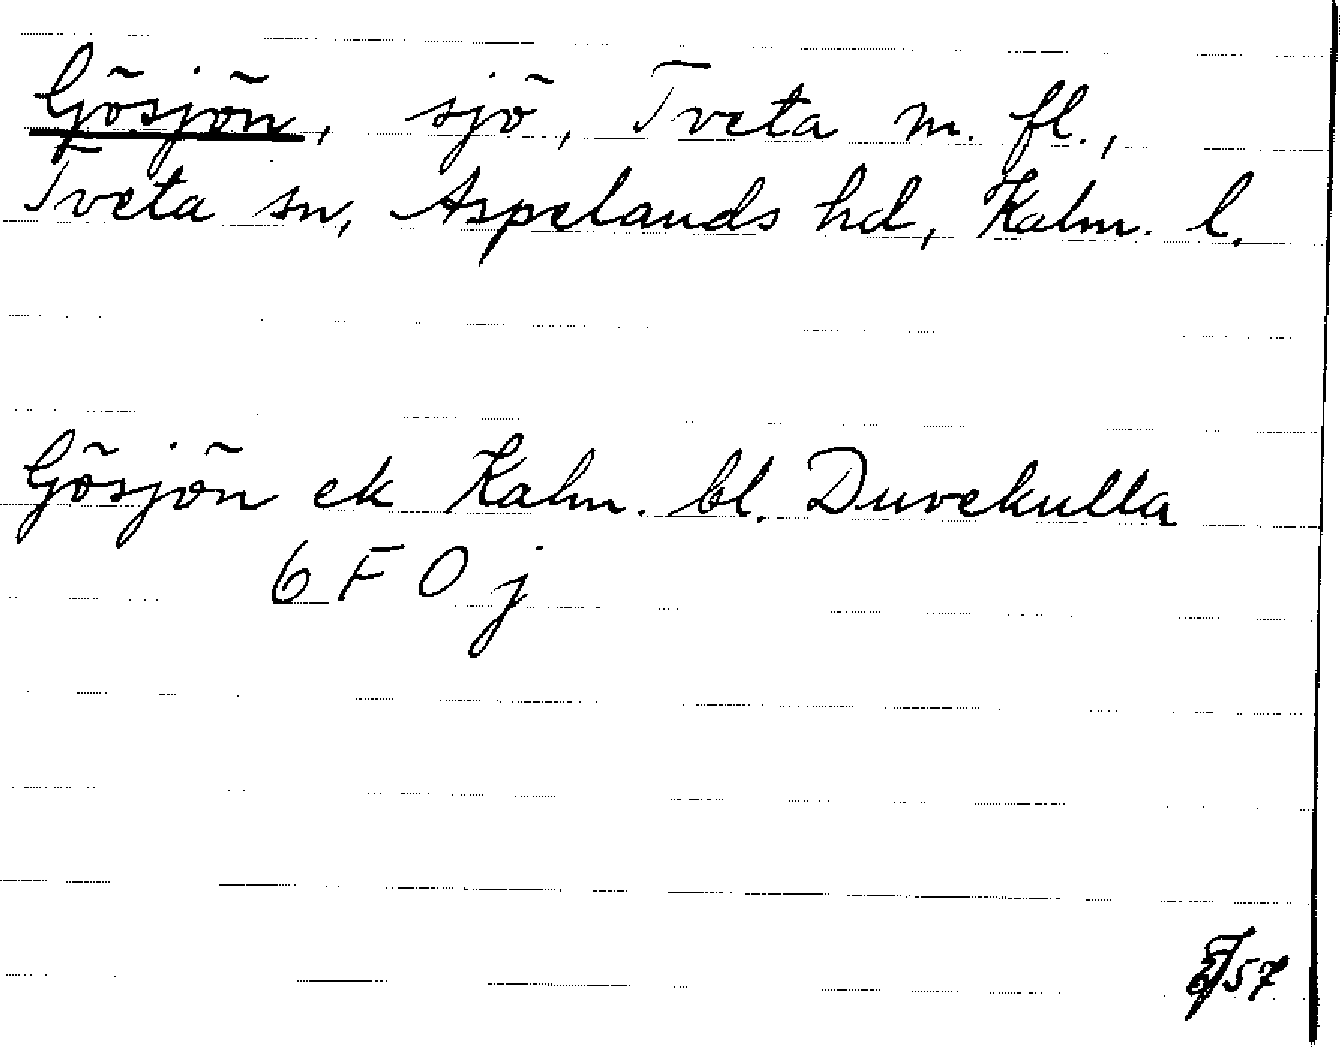 Gösjön, sjö, Tveta m. fl.,
Tveta sn, Aspelands hd, Kalm. l.
Gösjön ek Kalm. bl. Duvekulla
6 F 0 j
57